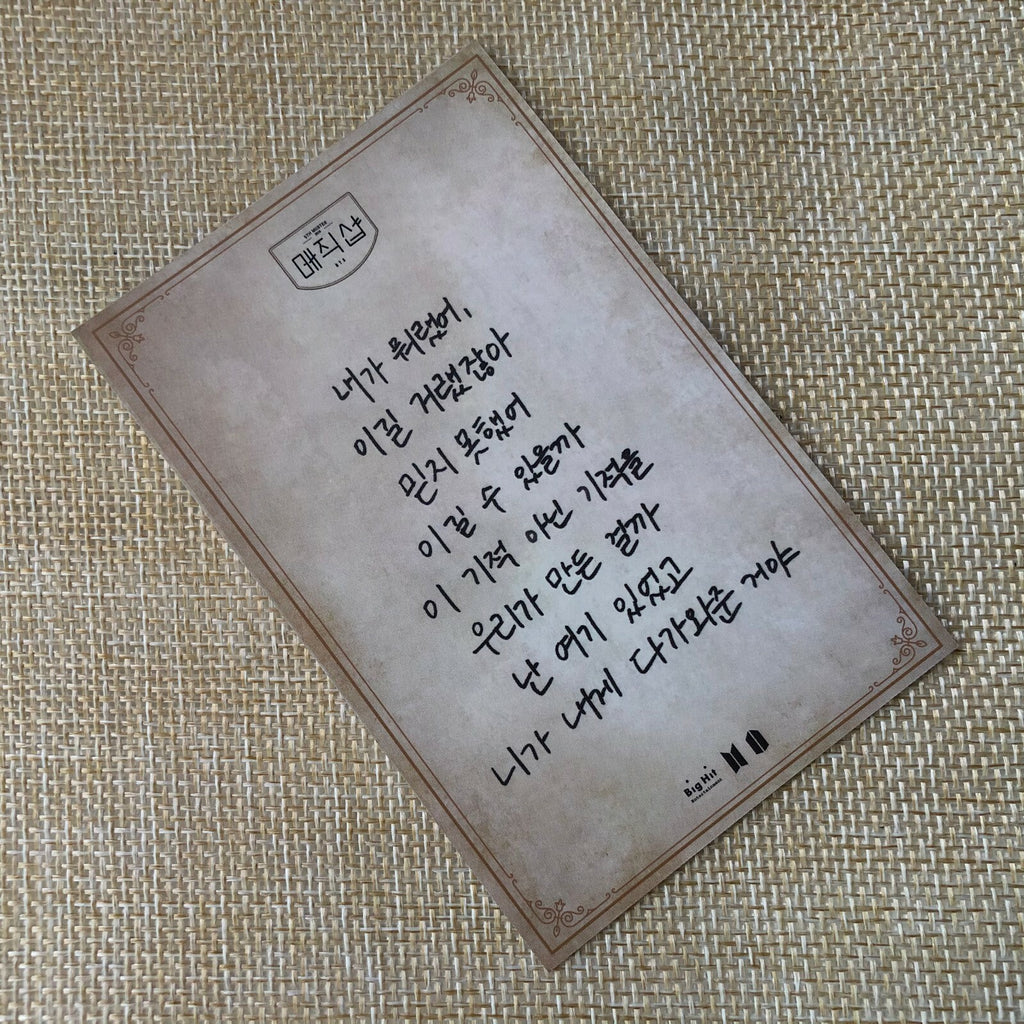 5TH MUSTER
매직샵
BTS
내가 뭐랬어,
이길 거랬잖아
믿지 못했어
이길 수 있을까
이 기적 아닌 기적을
우리가 만든 걸까
난 여기 있었고
니가 내게 다가와준 거야
Big Hit
Entertainment